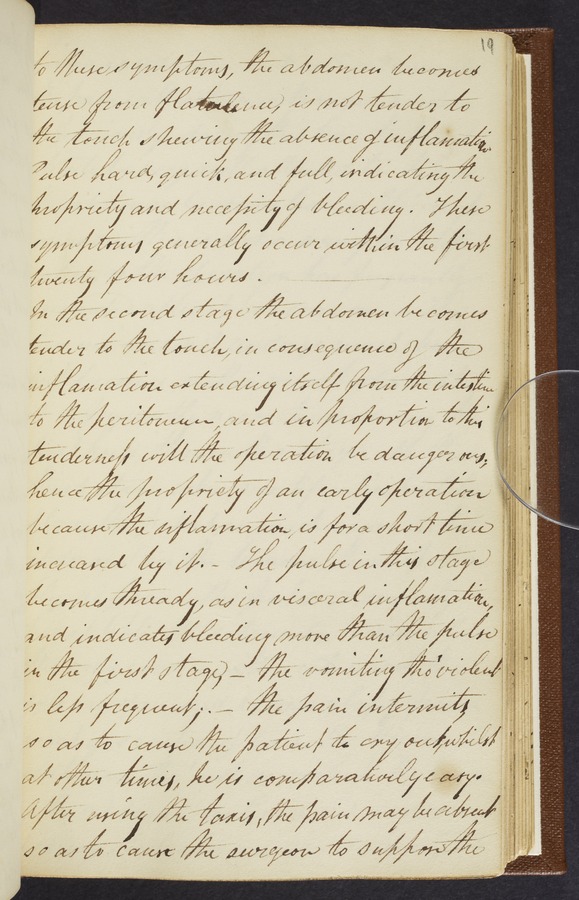 19
to these symptoms, the abdomen becomes
tense from flatulence, is not tender to
the touch shewing the absence of inflamation
Pulse hard, quick, and full, indicating the
propriety and necessity of bleeding. These
symptoms generally occur within the first
twenty four hours.
In the second stage the abdomen becomes
tender to the touch, in consequence of the
inflamation extending itself from the intestine
to the peritoneum, and in proportion to this
tenderness will the operation be dangerous,
hence the propriety of an early operation
because the inflamation, is for a short time
increased by it. - The pulse in this stage
becomes thready, as in visceral inflamation,
and indicates bleeding more than the pulse
in the first stage, - the vomiting tho' violent
is less frequent; - the pain intermits
so as to cause the patient to cry out whilst
at other times, he is comparatively easy.
After using the taxis, the pain may be absent
so as to cause the surgeon to suppose the